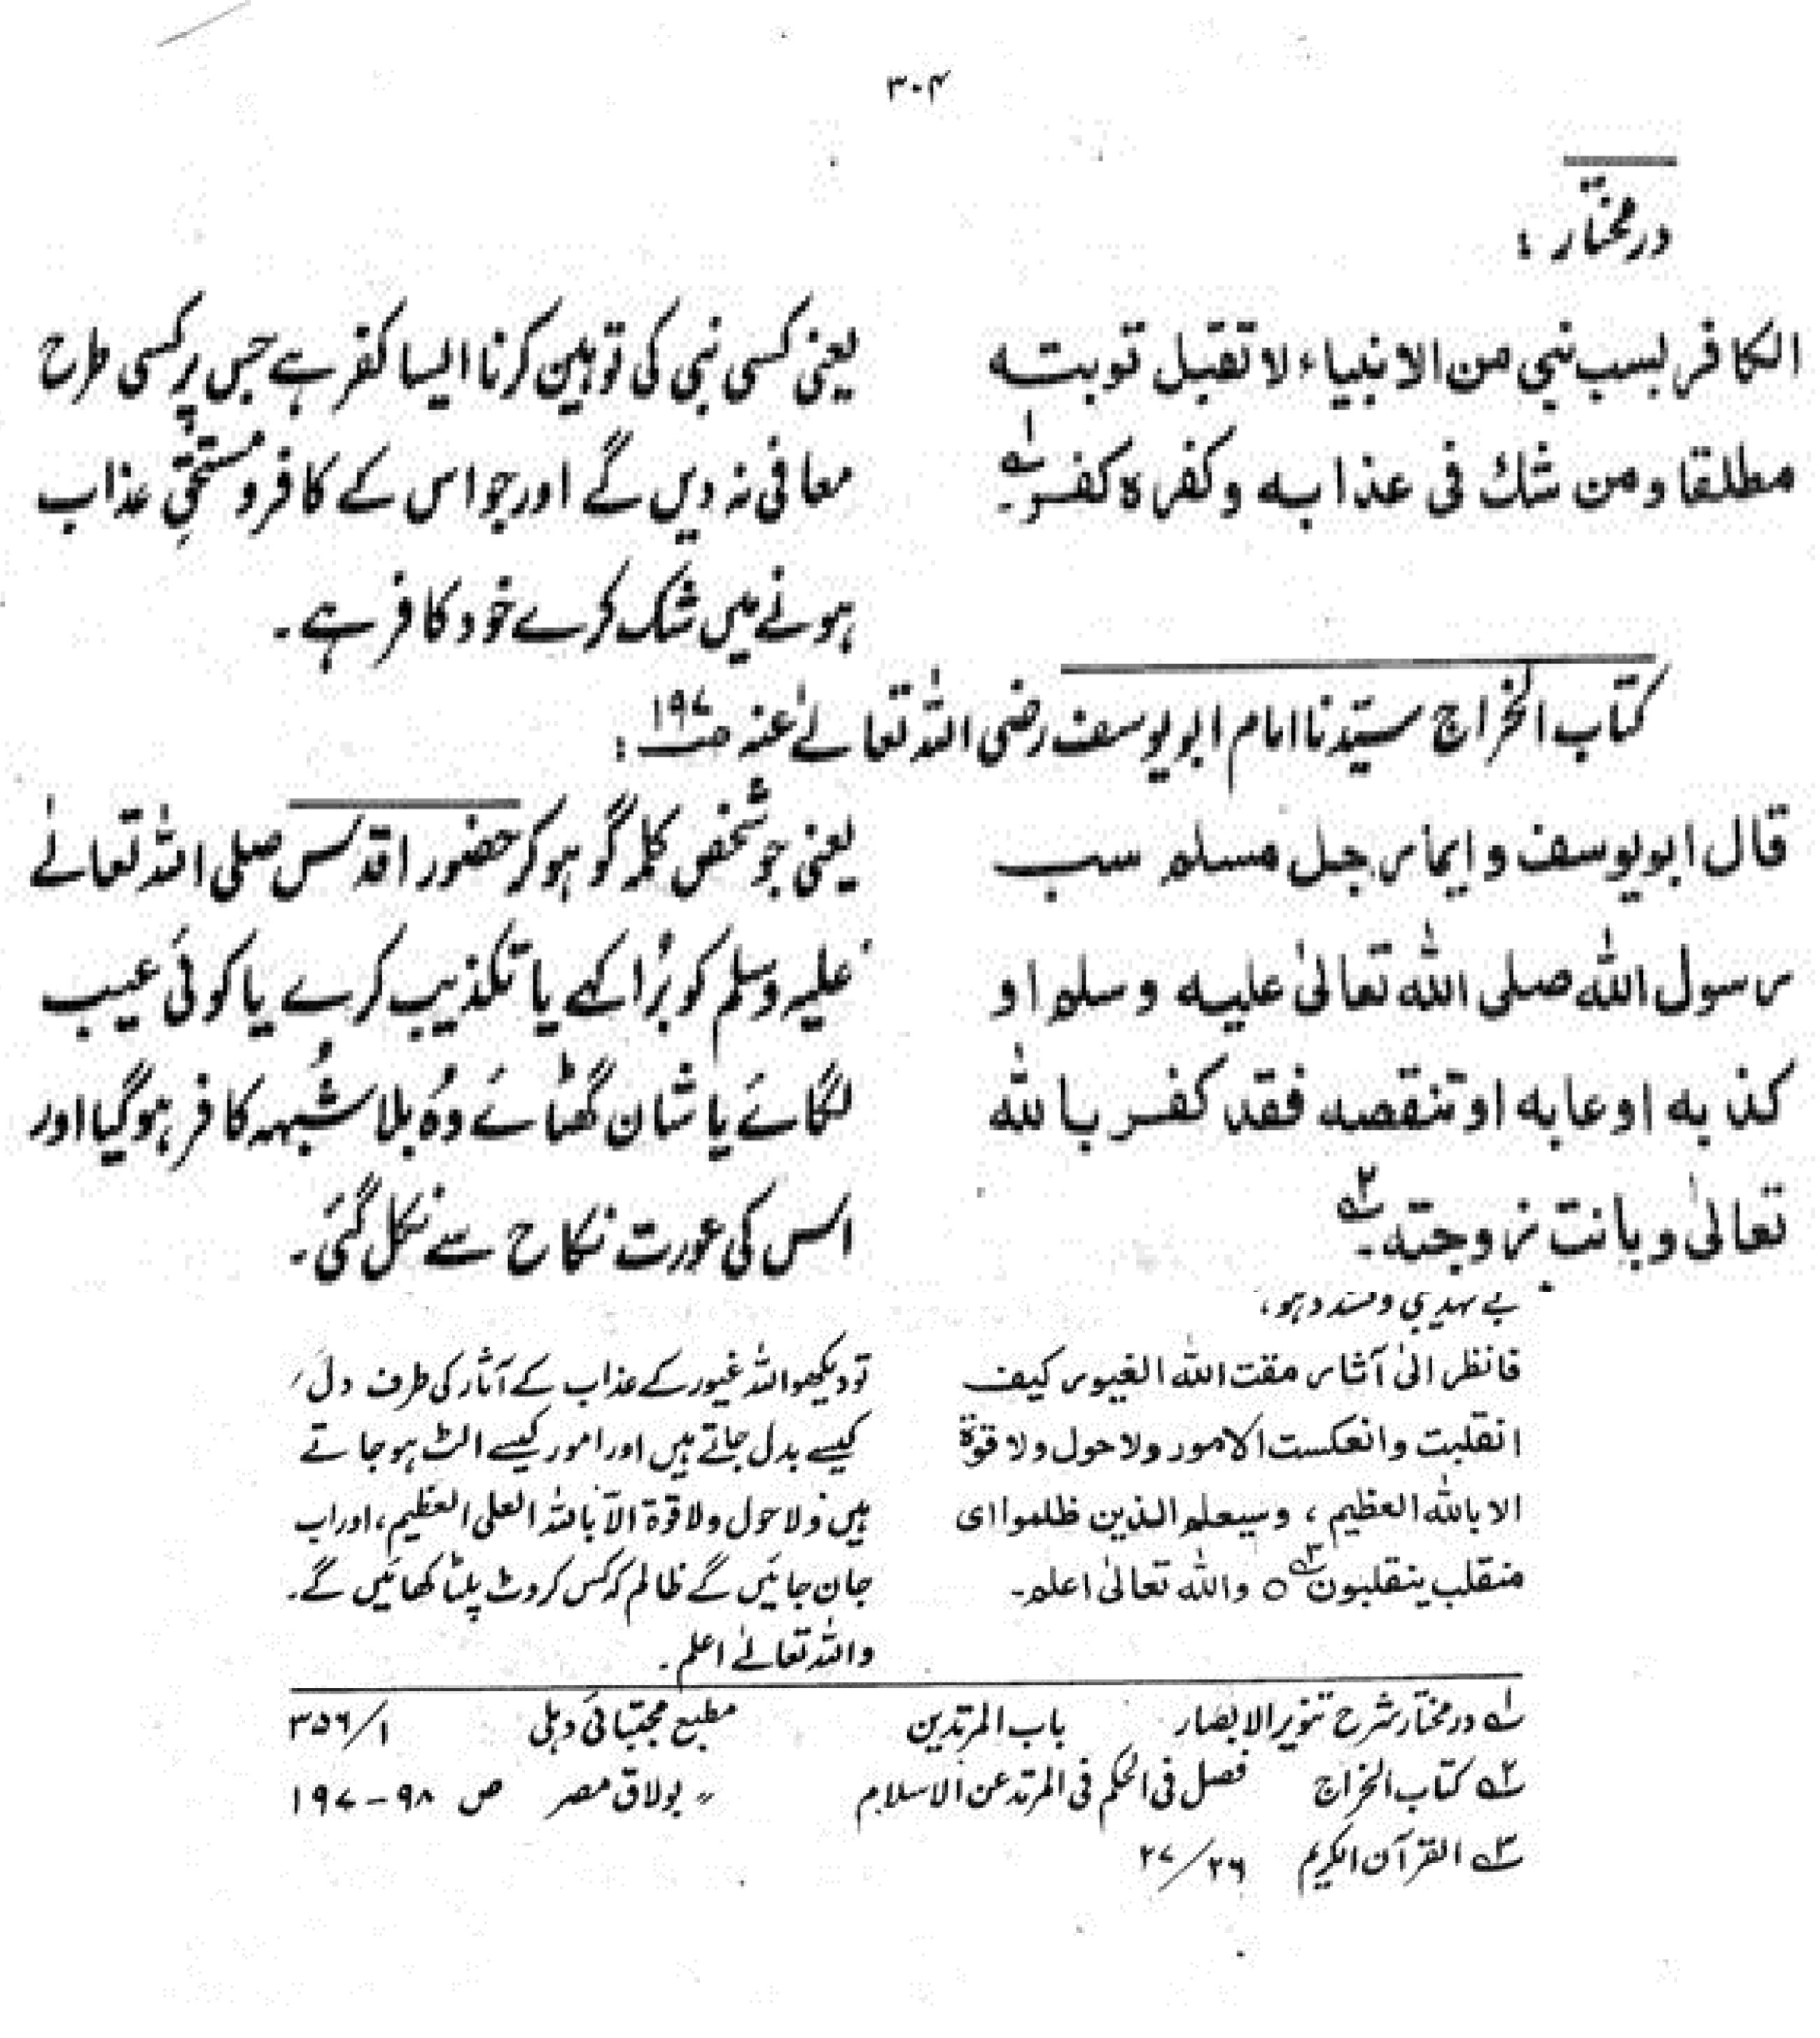 ۳۰۴
درمختار :
الکافر بسب نبی من الانبیاء لا تقبل توبته
مطلقا ومن شك فی عذابه وکفره کفر۔ ۱؎
یعنی کسی نبی کی توہین کرنا ایسا کفر ہے جس پر کسی طرح
معافی نہ دیں گے اور جو اس کے کافر و مستحقِ عذاب
ہونے میں شک کرے خود کافر ہے۔
کتاب الخراج سیّدنا امام ابویوسف رضی اللہ تعالٰے عنہ ص۱۹۷ :
قال ابویوسف وایما رجل مسلم سب
رسول الله صلی الله تعالٰی علیه وسلم او
کذبه اوعابه اوتنقصه فقد کفر بالله
تعالٰی وبانت زوجته۔ ۲؎
یعنی جو شخص کلمہ گو ہو کر حضور اقدس صلی اللہ تعالٰے
علیہ وسلم کو بُرا کہے یا تکذیب کرے یا کوئی عیب
لگائے یا شان گھٹائے وہ بلاشُبہہ کافر ہوگیا اور
اس کی عورت نکاح سے نکل گئی۔
فانظر الٰی آثار مقت الله الغیور کیف
انقلبت وانعکست الامور ولاحول ولا قوۃ
الا بالله العظیم ، وسیعلم الذین ظلموا ای
منقلب ینقلبون ۳؎ ○ والله تعالٰی اعلم۔
تو دیکھو اللہ غیور کے عذاب کے آثار کی طرف دل
کیسے بدل جاتے ہیں اور امور کیسے الٹ ہوجاتے
ہیں ولاحول ولاقوۃ الّا باللہ العلی العظیم، اور اب
جان جائیں گے ظالم کہ کس کروٹ پلٹا کھائیں گے۔
واللہ تعالٰے اعلم۔
۱؎ درمختار شرح تنویر الابصار باب المرتدین مطبع مجتبائی دہلی ۱/۳۵۶
۲؎ کتاب الخراج فصل فی الحکم فی المرتد عن الاسلام 〃 بولاق مصر ص ۹۸-۱۹۷
۳؎ القرآن الکریم ۲۶/۲۷